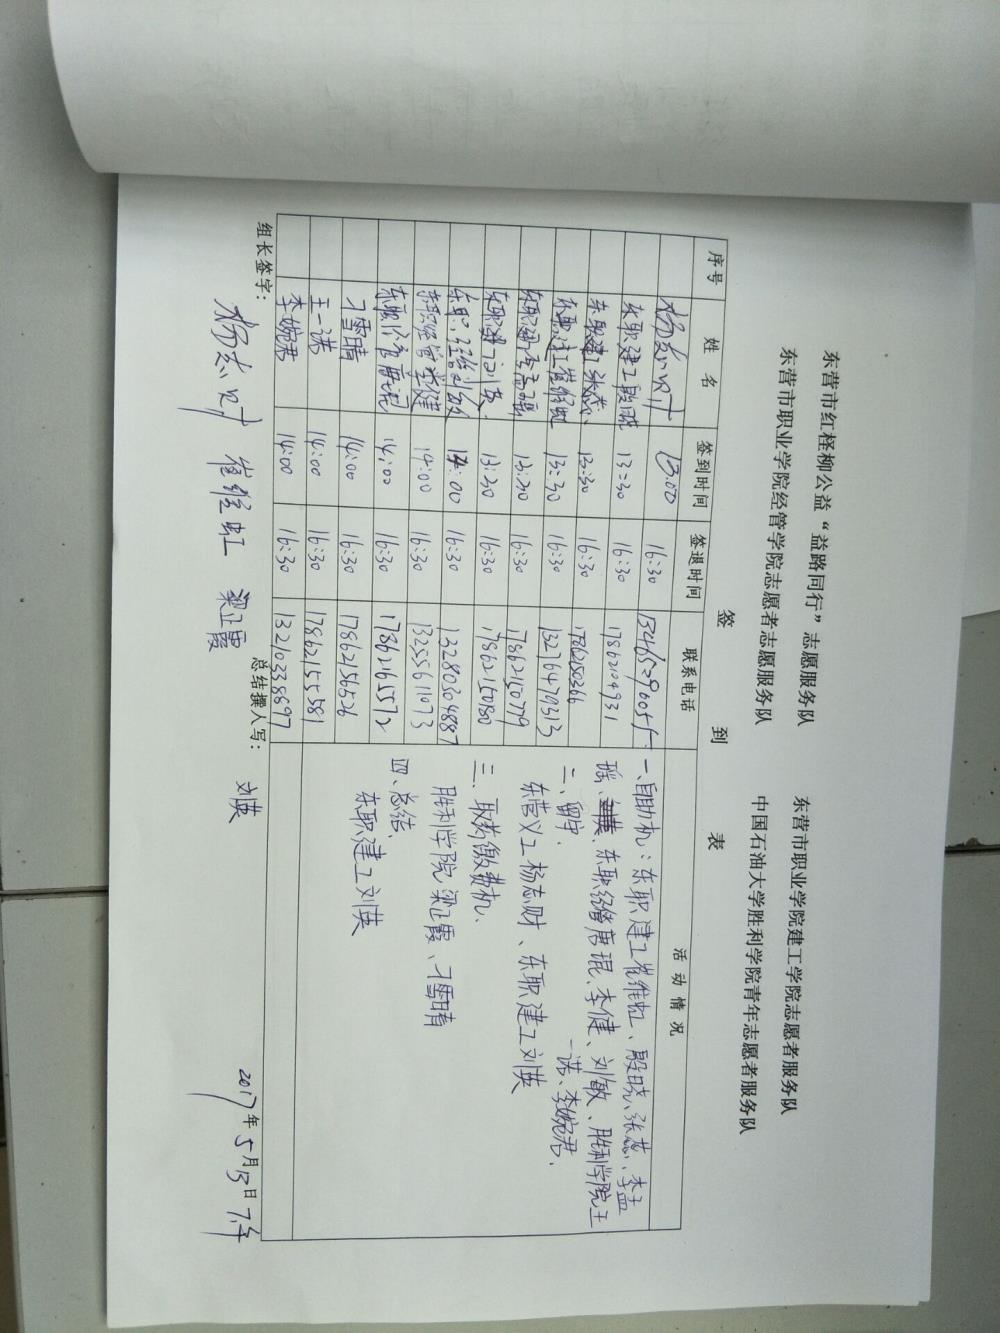 东营市红柽柳公益“益路同行”志愿服务队 东营市职业学院建工学院志愿者服务队
东营市职业学院经管学院志愿者志愿服务队 中国石油大学胜利学院青年志愿者服务队
签 到 表
序号 姓 名 签到时间 签退时间 联系电话 活 动 情 况
杨志财 13:00 16:30 13465290055
东职建工殷晓 13:30 16:30 17862104931
东职建工张蕊 13:30 16:30 17862150366
东职建工崔维虹 13:30 16:30 13276479313
东职建工李孟瑶 13:30 16:30 17862150779
东职建工刘英 13:30 16:30 17862150180
东职经管刘敏 14:00 16:30 13280304887
东职经管李健 14:00 16:30 13255611073
东职经管唐琨 14:00 16:30 17862165572
刁雪晴 14:00 16:30 17862156526
王一诺 14:00 16:30 17862155581
李婉君 14:00 16:30 13210338697
一、自助机：东职建工崔维虹、殷晓、张蕊、李孟
瑶、东职经管唐琨、李健、刘敏、胜利学院王
一诺、李婉君.
二、留守.
东营义工杨志财、东职建工刘英
三、取药缴费机.
胜利学院梁正霞、刁雪晴
四、总结.
东职建工刘英
组长签字： 杨志财 崔维虹 梁正霞 总结撰人写： 刘英
2017年5月13日下午